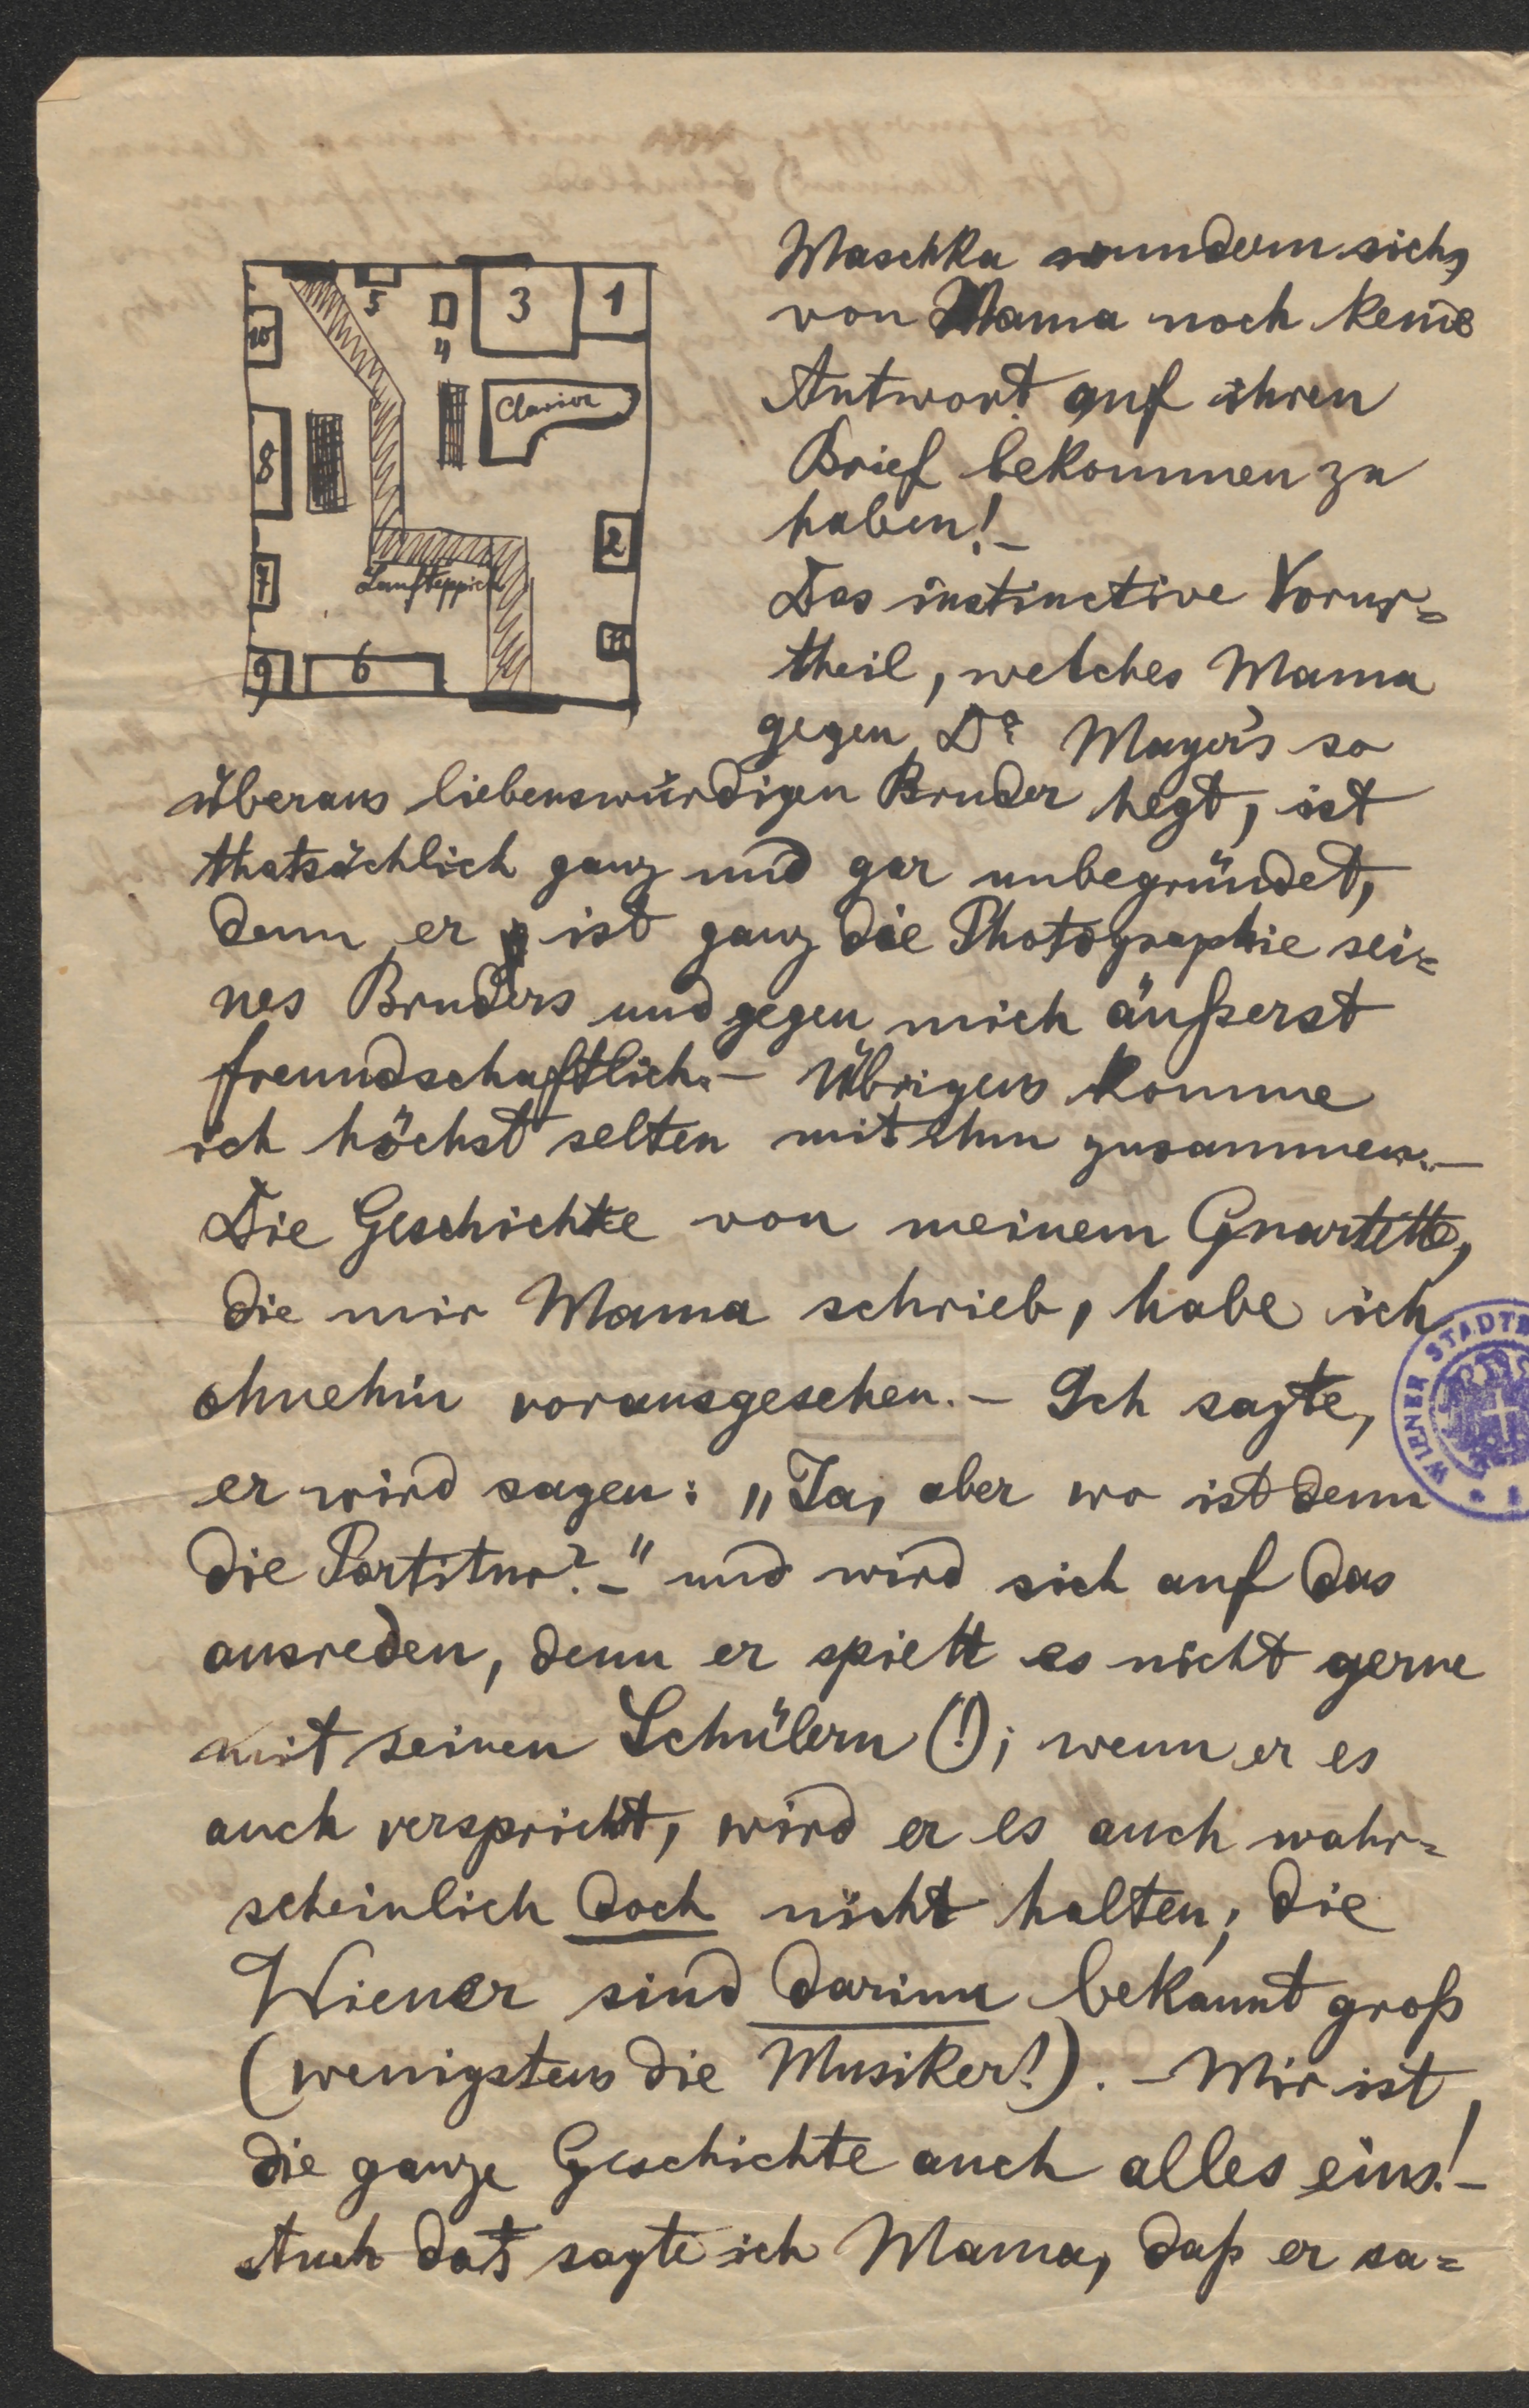 Maschka wundern sich,
von Mama noch keine
Antwort auf ihren
Brief bekommen zu
haben! –
Das instinctive Vorur=
theil, welches Mama
gegen Dr Mayer's so
überaus liebenswürdigen Bruder hegt, ist
thatsächlich ganz und gar unbegründet,
denn er ist ganz die Photographie sei=
nes Bruders und gegen mich äußerst
freundschaftlich. – Übrigens komme
ich höchst selten mit ihm zusammen. –
Die Geschichte von meinem Quartette,
die mir Mama schrieb, habe ich
ohnehin vorausgesehen. – Ich sagte,
er wird sagen: „Ja, aber wo ist denn
die Partitur? –" und wird sich auf das
ausreden, denn er spielt es nicht gerne
mit seinen Schülern (!); wenn er es
auch verspricht, wird er es auch wahr=
scheinlich doch nicht halten; die
Wiener sind darinn bekannt groß
(wenigstens die Musiker!). – Mir ist
die ganze Geschichte auch alles eins! –
Auch das sagte ich Mama, daß er sa=
5
3
1
10
4
Clavier
8
2
7
Laufteppich
11
9
6
WIENER STADTB